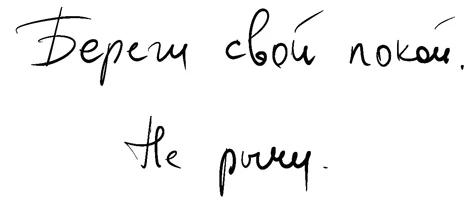 Береги свой покой.
Не рычи.